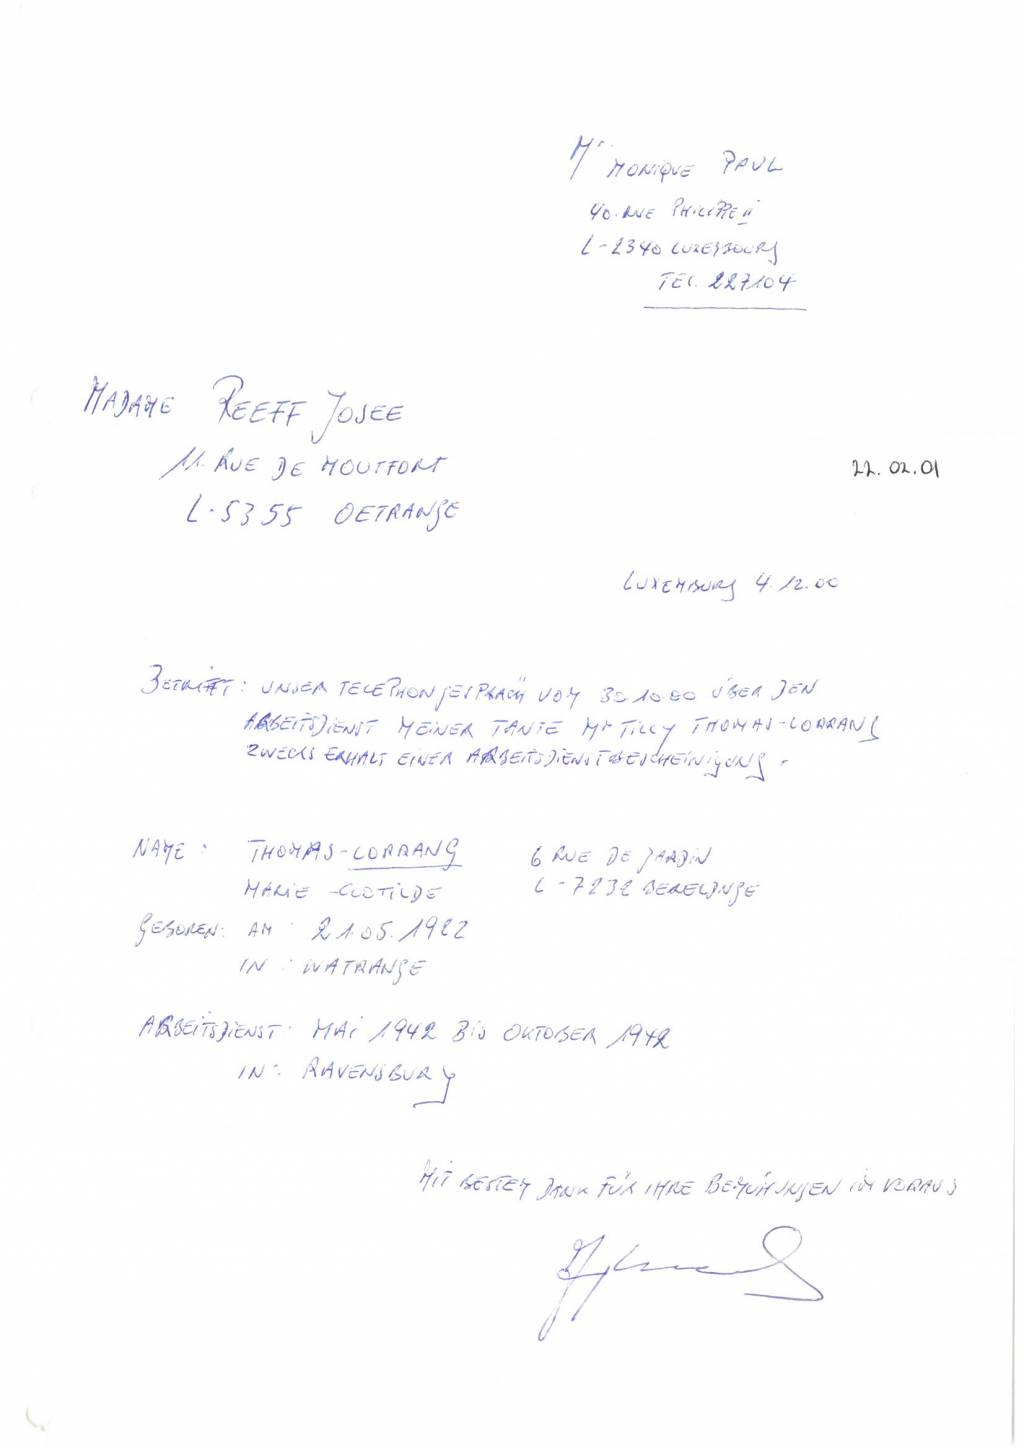 Mr MONIQUE PAUL
40. RUE PHILIPPE II
L-2340 LUXEMBOURG
TEL. 227104
MADAME REEFF JOSEE
11. RUE DE MOUTFORT
L-5355 OETRANGE
22.02.01
LUXEMBURG 4.12.00
BETRIFFT: UNSER TELEPHONGESPRÄCH VOM 30.10.00 ÜBER DEN
ARBEITSDIENST MEINER TANTE Mr TILLY THOMAS-LORRANG
ZWECKS ERHALT EINER ARBEITSDIENSTBESCHEINIGUNG.
NAME: THOMAS-LORRANG 6 RUE DE JARDIN
MARIE-CLOTILDE L-7232 BERELDNGE
GEBOREN: AM : 21.05.1922
IN : WATRANGE
ARBEITSDIENST: MAI 1942 BIS OKTOBER 1942
IN: RAVENSBURG
MIT BESTEM DANK FÜR IHRE BEMÜHUNGEN IM VORAUS